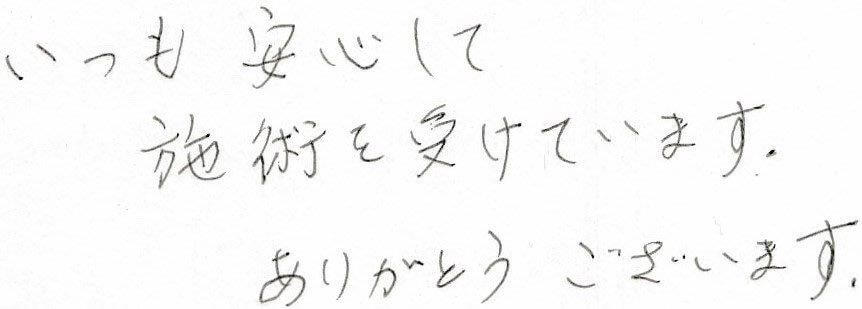 いつも安心して
施術を受けています.
ありがとうございます.